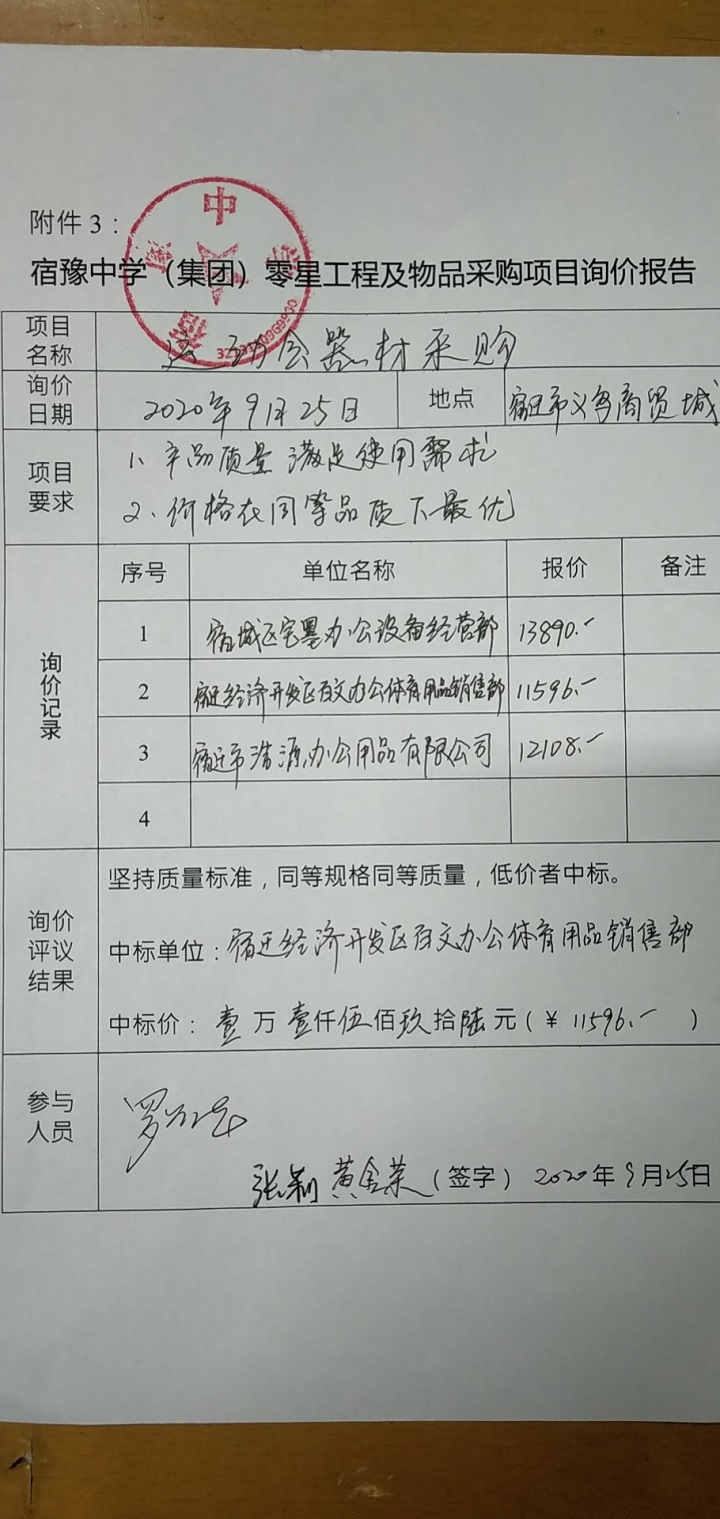 附件 3：
宿豫中学（集团）零星工程及物品采购项目询价报告
项目名称 运动会器材采购
询价日期 2020年9月25日 地点 宿迁市义乌商贸城
项目要求
1、产品质量满足使用需求
2、价格在同等品质下最优
询价记录
序号 单位名称 报价 备注
1 宿城区宅墨办公设备经营部 13890.-
2 宿迁经济开发区百文办公体育用品销售部 11596.-
3 宿迁市浩源办公用品有限公司 12108.-
4
询价评议结果
坚持质量标准，同等规格同等质量，低价者中标。
中标单位：宿迁经济开发区百文办公体育用品销售部
中标价：壹万壹仟伍佰玖拾陆元（￥11596.-）
参与人员
黄金荣（签字）2020年9月25日